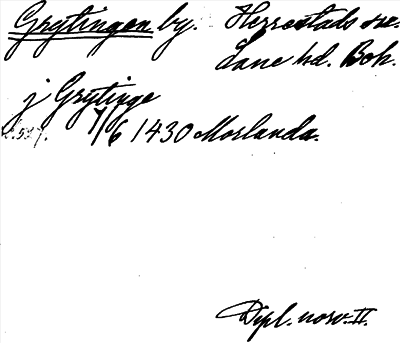 Grytingen by. Herrestads sn.
Lane hd. Boh.
j Grytinge
7/6 1430 Morlanda.
Dipl. norv. II.